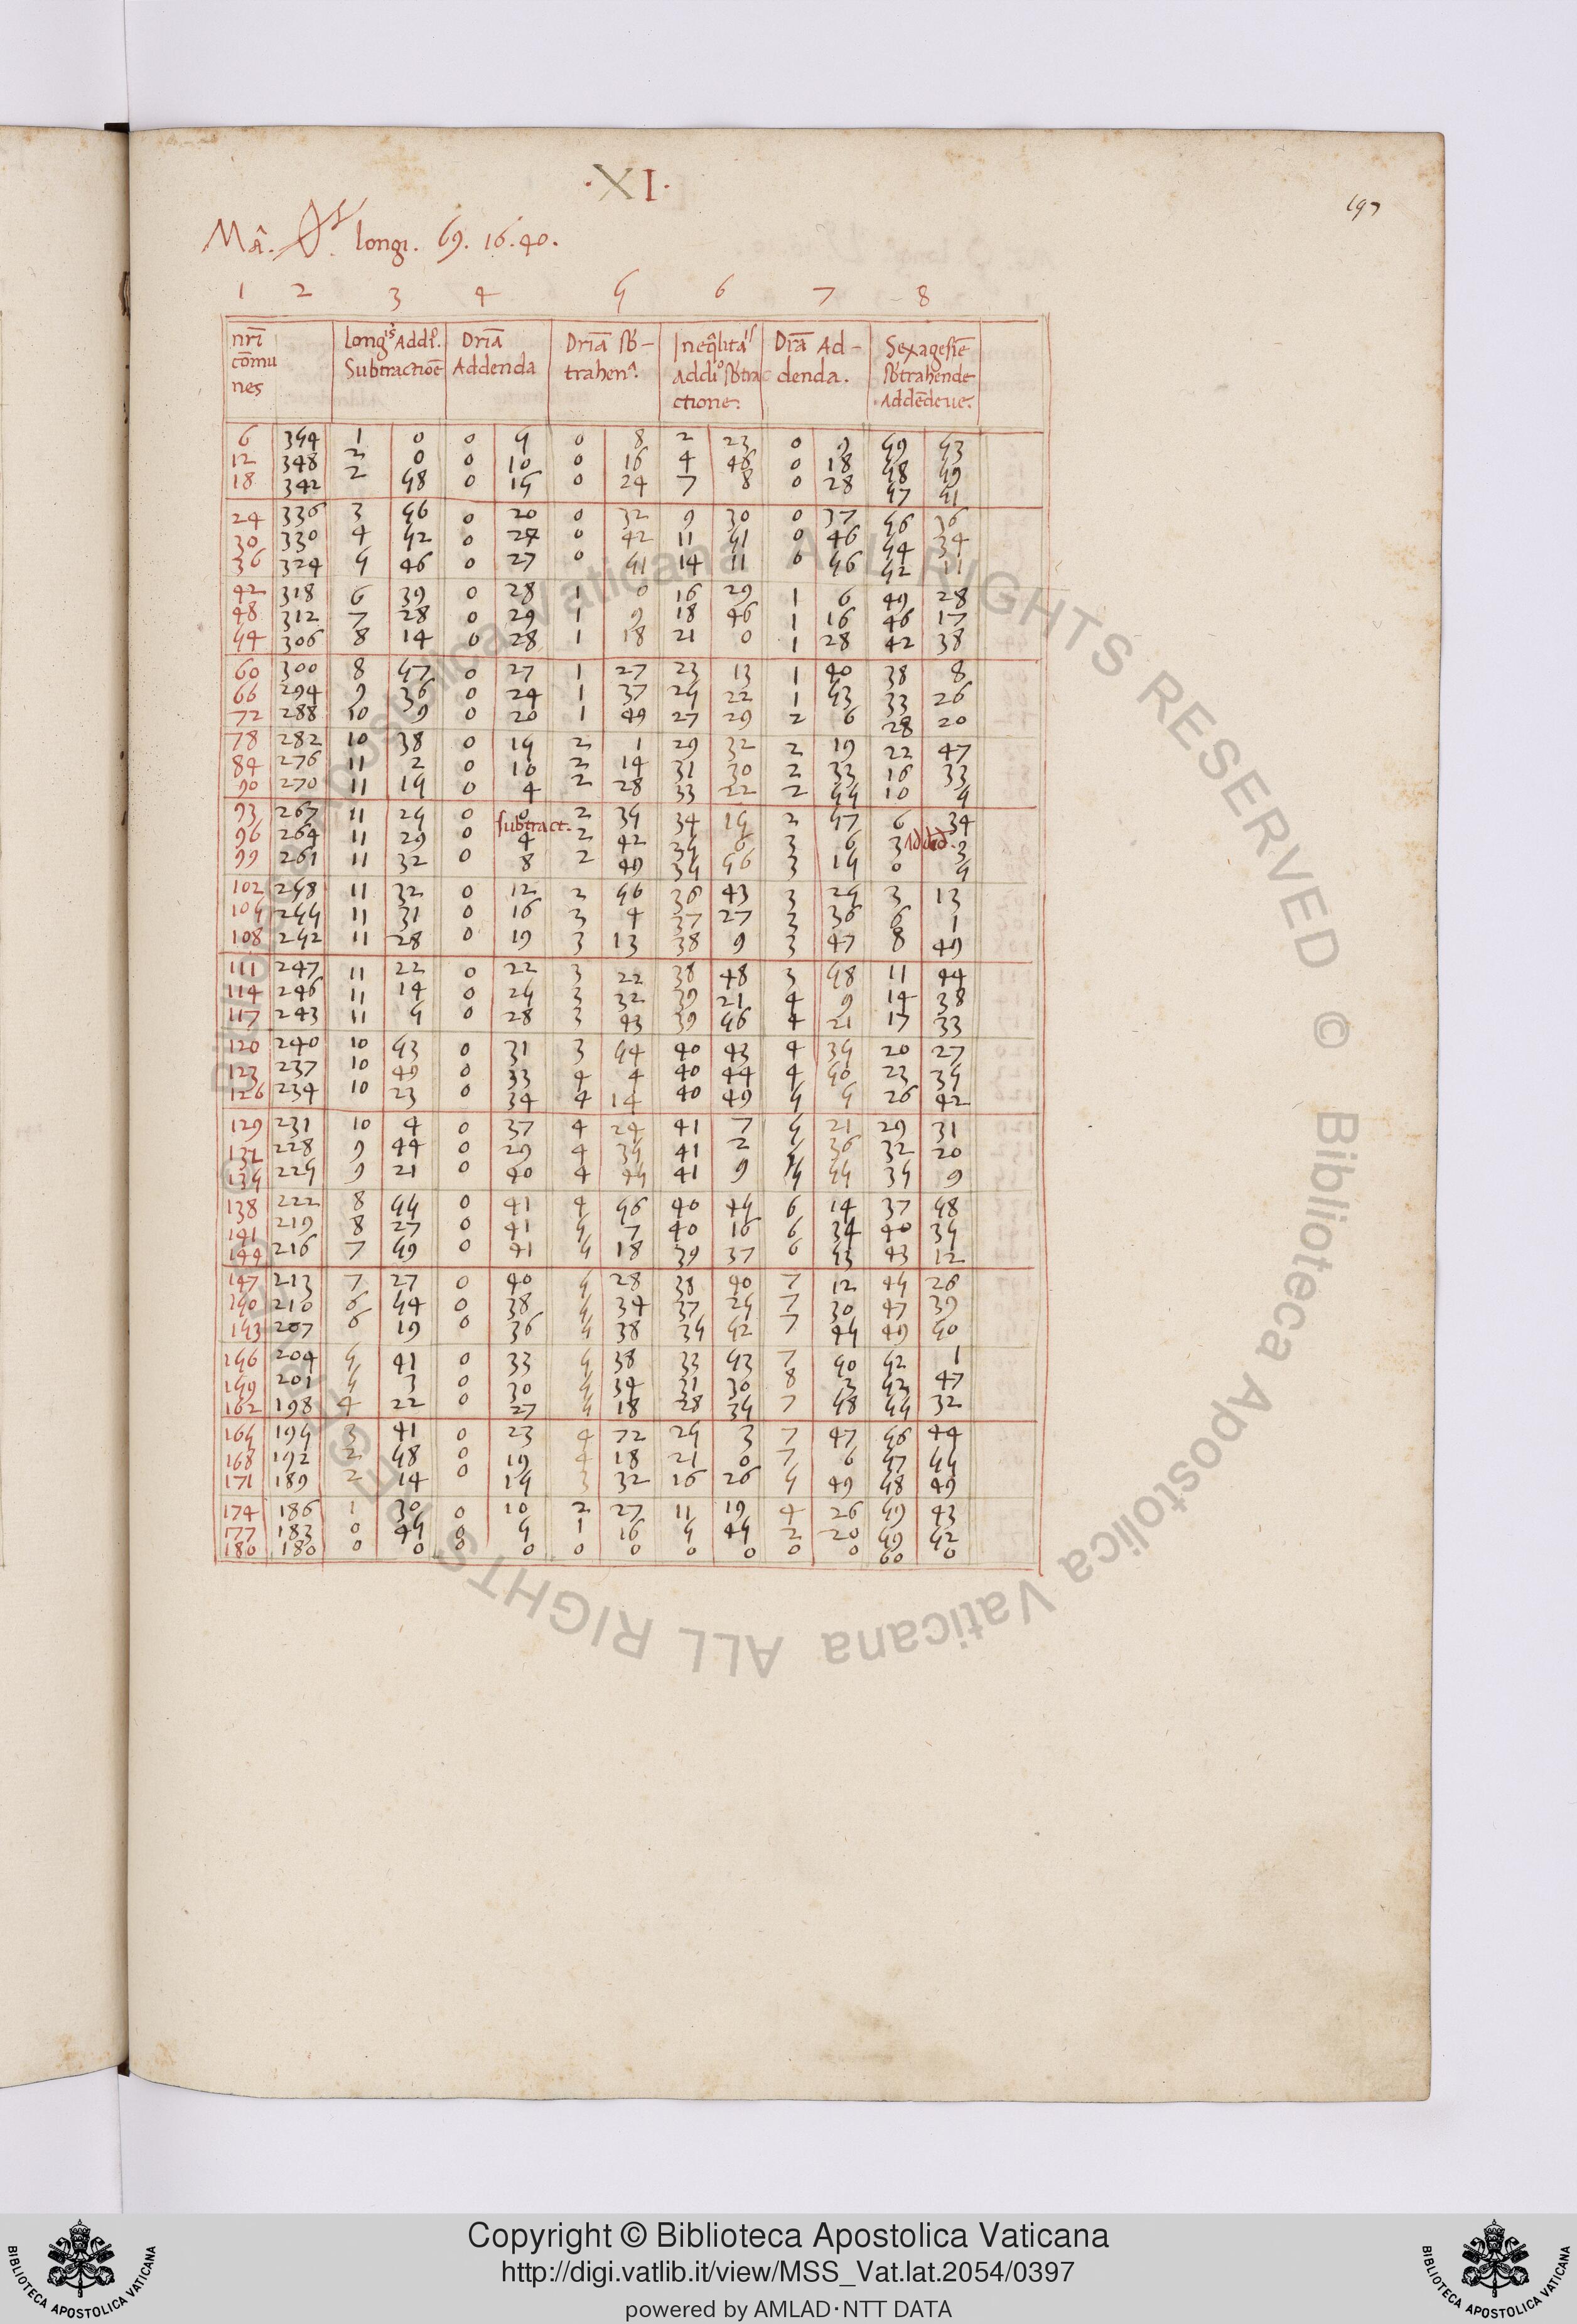 ·XI·
197
Mâ. longi. 69. 16.40.
1 2 3 4 5 6 7 8
nri cõmu nes longis Addi. Subtractiõe Dria Addenda Dria sb- trahen. Ineqlita Addi sbtra ctione. Dria Ad- denda. Sexagesie sbtrahende Addẽdeue.
6 354 1 0 0 5 0 8 2 23 0 9 59 53
12 348 2 0 0 10 0 16 4 46 0 18 58 59
18 342 2 58 0 15 0 24 7 8 0 28 57 51
24 336 3 56 0 20 0 32 9 30 0 37 56 36
30 330 4 52 0 24 0 42 11 51 0 46 54 34
36 324 5 46 0 27 0 51 14 11 0 56 52 11
42 318 6 39 0 28 1 0 16 29 1 6 49 28
48 312 7 28 0 29 1 9 18 46 1 16 46 17
54 306 8 14 0 28 1 18 21 0 1 28 42 38
60 300 8 57 0 27 1 27 23 13 1 40 38 8
66 294 9 36 0 24 1 37 25 22 1 53 33 26
72 288 10 9 0 20 1 49 27 29 2 6 28 20
78 282 10 38 0 15 2 1 29 32 2 19 22 47
84 276 11 2 0 10 2 14 31 30 2 33 16 33
90 270 11 19 0 4 2 28 33 22 2 55 10 5
93 267 11 25 0 0 2 35 34 15 2 57 6 34
subtract. Added.
96 264 11 29 0 4 2 42 35 6 3 6 3 3
99 261 11 32 0 8 2 49 35 56 3 15 0 5
102 258 11 32 0 12 2 56 36 43 3 25 3 13
105 255 11 31 0 16 3 4 37 27 3 36 6 1
108 252 11 28 0 19 3 13 38 9 3 47 8 49
111 247 11 22 0 22 3 22 38 48 3 58 11 44
114 246 11 14 0 25 3 32 39 21 4 9 14 38
117 243 11 5 0 28 3 43 39 56 4 21 17 33
120 240 10 53 0 31 3 54 40 43 4 35 20 27
123 237 10 49 0 33 4 4 40 44 4 50 23 35
126 234 10 23 0 34 4 14 40 49 5 5 26 42
129 231 10 4 0 37 4 24 41 7 5 21 29 31
132 228 9 44 0 29 4 35 41 2 5 36 32 20
135 225 9 21 0 40 4 45 41 9 5 55 35 9
138 222 8 55 0 41 4 56 40 45 6 14 37 58
141 219 8 27 0 41 5 7 40 16 6 34 40 35
144 216 7 59 0 41 5 18 39 37 6 53 43 12
147 213 7 27 0 40 5 28 38 40 7 12 45 26
150 210 6 54 0 38 5 34 37 25 7 30 47 39
153 207 6 19 0 36 5 38 35 52 7 45 49 50
156 204 5 41 0 33 5 38 33 53 7 50 52 1
159 201 5 3 0 30 5 34 31 30 8 3 53 47
162 198 4 22 0 27 5 18 28 35 7 58 55 32
165 195 3 41 0 23 4 72 25 3 7 47 56 44
168 192 2 58 0 19 4 18 21 0 7 6 57 55
171 189 2 14 0 15 3 32 16 26 5 49 58 49
174 186 1 30 0 10 2 27 11 19 4 26 59 43
177 183 0 45 0 5 1 16 5 45 2 20 59 52
180 180 0 0 0 0 0 0 0 0 0 0 60 0
© Biblioteca Apostolica Vaticana ALL RIGHTS RESERVED © Biblioteca Apostolica Vaticana ALL RIGHTS RESERVED
Copyright © Biblioteca Apostolica Vaticana
http://digi.vatlib.it/view/MSS_Vat.lat.2054/0397
powered by AMLAD·NTT DATA
BIBLIOTECA APOSTOLICA VATICANA
BIBLIOTECA APOSTOLICA VATICANA